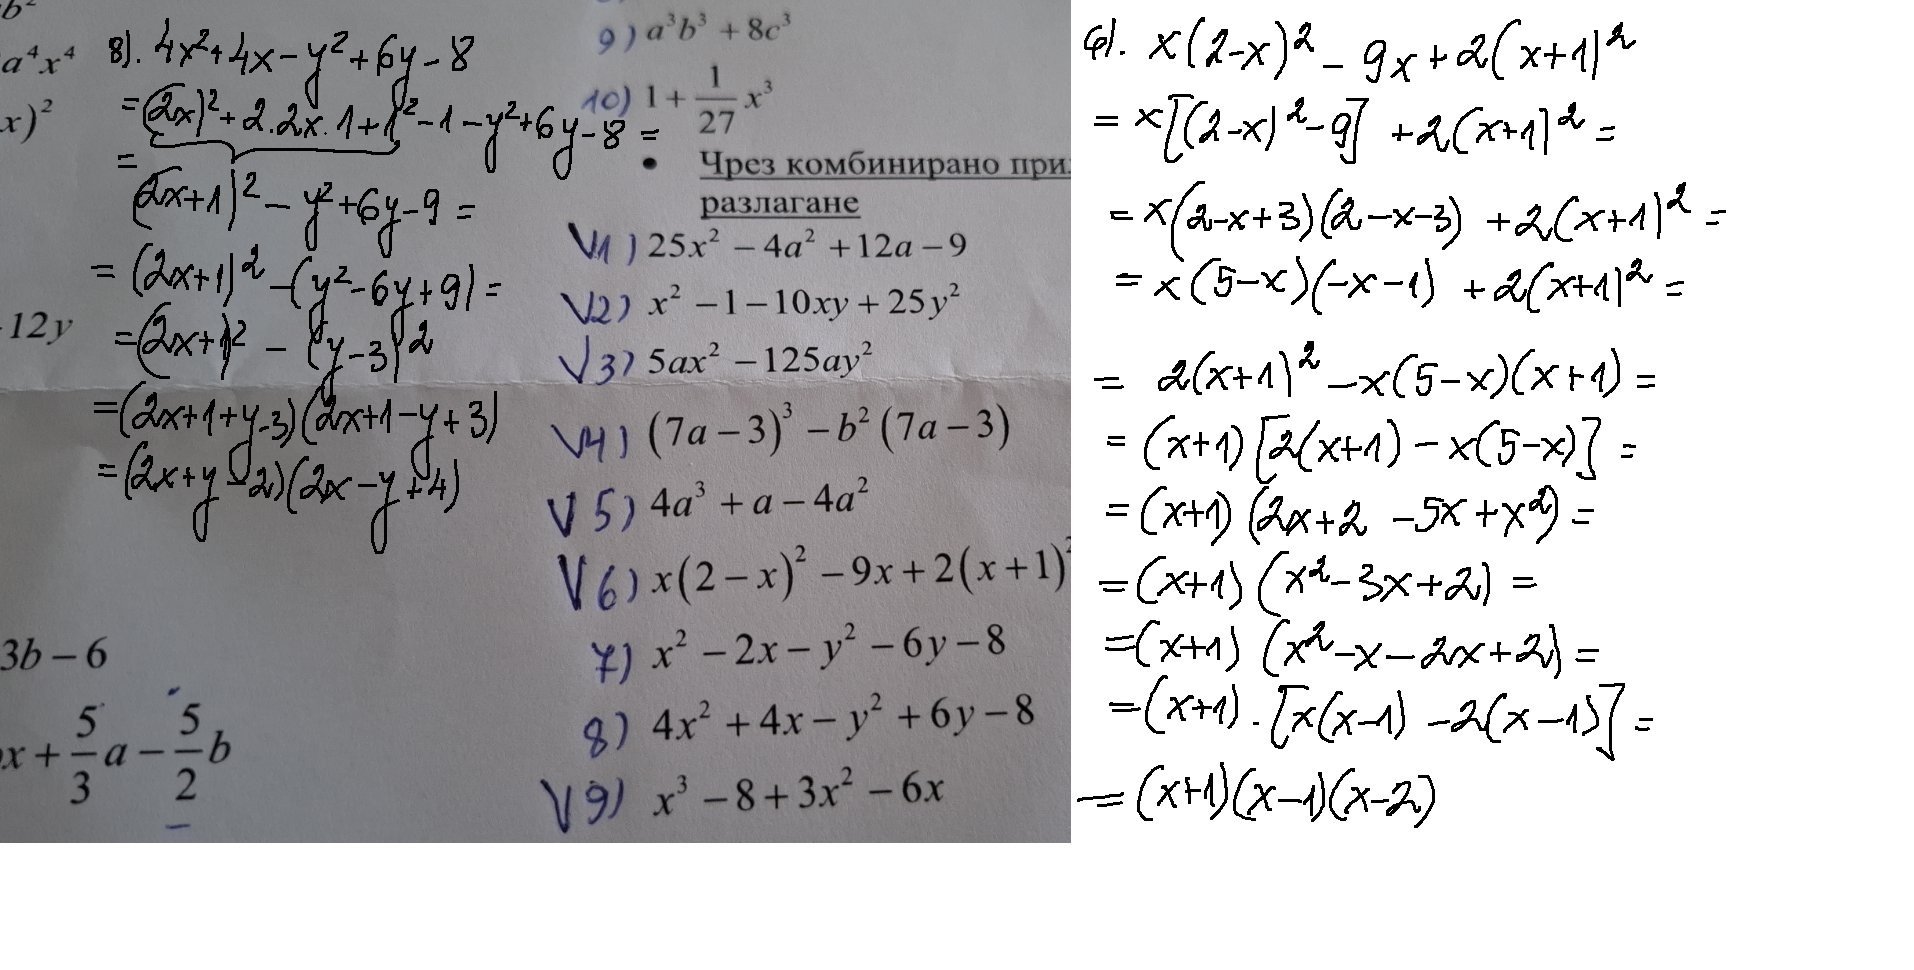 b²
a⁴x⁴
x)²
12y
3b − 6
x + 5/3 a − 5/2 b
8). 4x²+4x−y²+6y−8
=(2x)²+2.2x.1+1²−1−y²+6y−8 =
=
(2x+1)²−y²+6y−9 =
= (2x+1)²−(y²−6y+9) =
=(2x+1)² − (y−3)²
=(2x+1+y−3)(2x+1−y+3)
=(2x+y−2)(2x−y+4)
9) a³b³ + 8c³
10) 1 + 1/27 x³
• Чрез комбинирано при
разлагане
V1) 25x² − 4a² + 12a − 9
V2) x² − 1 − 10xy + 25y²
V3) 5ax² − 125ay²
V4) (7a − 3)³ − b² (7a − 3)
V5) 4a³ + a − 4a²
V6) x(2 − x)² − 9x + 2(x + 1)²
7) x² − 2x − y² − 6y − 8
8) 4x² + 4x − y² + 6y − 8
V9) x³ − 8 + 3x² − 6x
6). x(2−x)² − 9x + 2(x+1)²
= x[(2−x)²−9] + 2(x+1)² =
= x(2−x+3)(2−x−3) + 2(x+1)² =
= x(5−x)(−x−1) + 2(x+1)² =
= 2(x+1)² − x(5−x)(x+1) =
= (x+1)[2(x+1) − x(5−x)] =
= (x+1)(2x+2 − 5x + x²) =
= (x+1)(x²−3x+2) =
=(x+1)(x²−x−2x+2) =
=(x+1).[x(x−1) −2(x−1)] =
= (x+1)(x−1)(x−2)